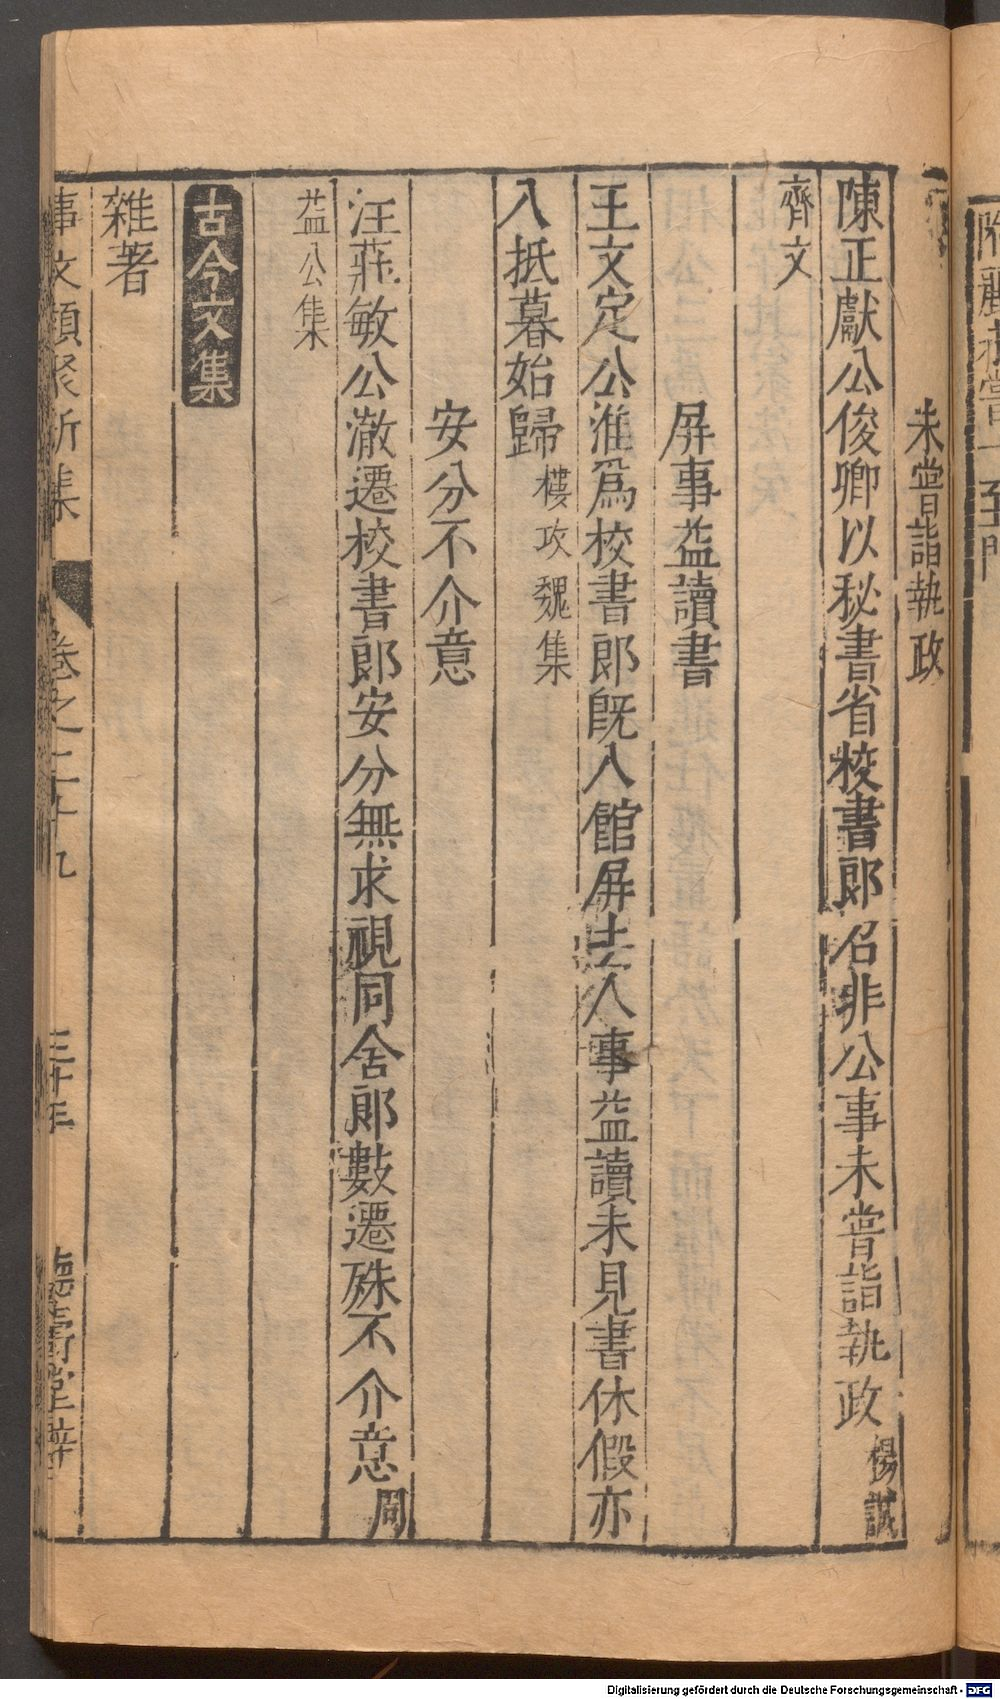 未嘗詣執政
陳正獻公俊卿以秘書省校書郎召非公事未嘗詣執政楊誠
齊文
屏事益讀書
王文定公淮爲校書郎旣入館屏去人事益讀未見書休假亦
入抵暮始歸樓攻魏集
安分不介意
汪莊敏公澈遷校書郎安分無求視同舍郎數遷殊不介意周
益公集
古今文集
雜著
事文類聚新集 卷之二十九 德壽堂梓
Digitalisierung gefördert durch die Deutsche Forschungsgemeinschaft - DFG